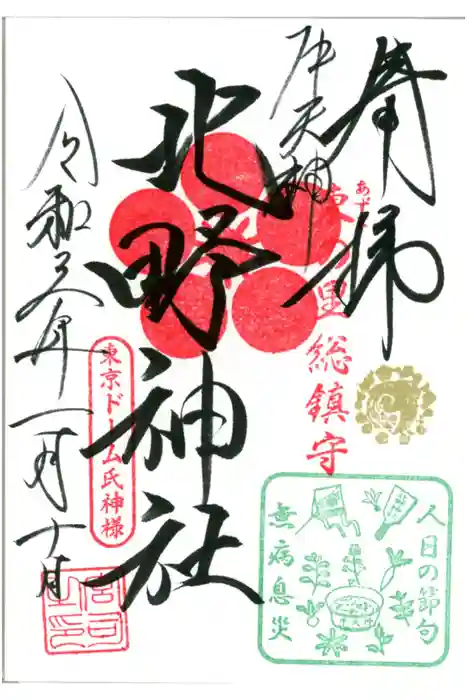 奉拝
東の里 総鎮守
あず
牛天神
北野神社
東京ドーム氏神様
令和
年一月十日
人日の節句
無病息災
宮司之印